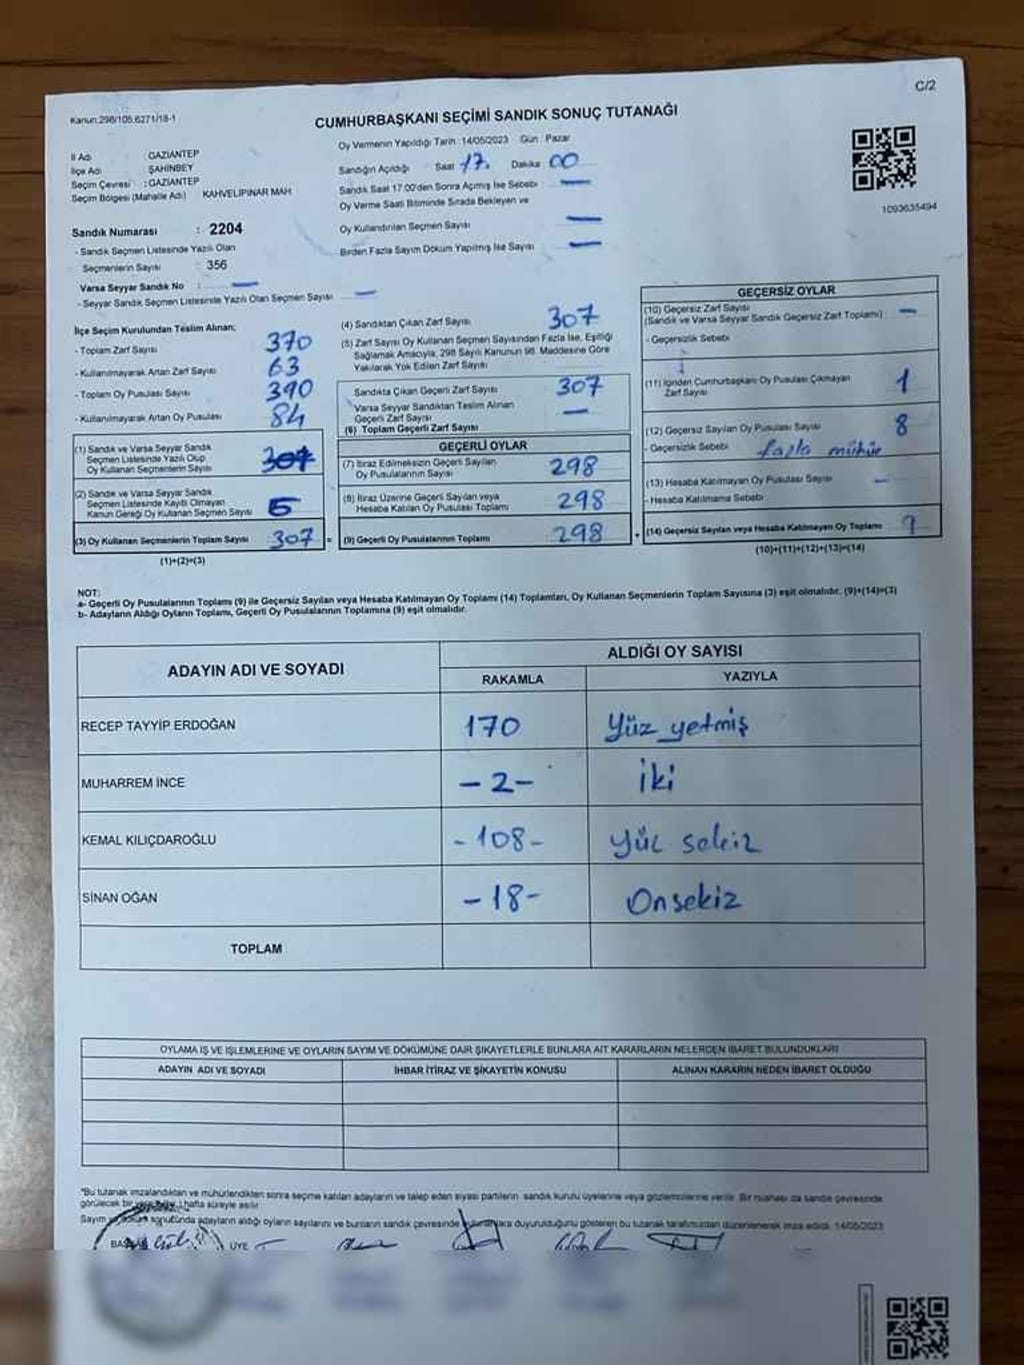 C/2
Kanun:298/105,6271/18-1
CUMHURBAŞKANI SEÇİMİ SANDIK SONUÇ TUTANAĞI
İl Adı : GAZİANTEP
İlçe Adı : ŞAHİNBEY
Seçim Çevresi : GAZİANTEP
Seçim Bölgesi (Mahalle Adı) KAHVELİPINAR MAH.
Sandık Numarası : 2204
- Sandık Seçmen Listesinde Yazılı Olan
Seçmenlerin Sayısı : 356
Varsa Seyyar Sandık No : —
- Seyyar Sandık Seçmen Listesinde Yazılı Olan Seçmen Sayısı : —
Oy Vermenin Yapıldığı Tarih :14/05/2023 Gün : Pazar
Sandığın Açıldığı Saat 17. Dakika 00
Sandık Saat 17.00'den Sonra Açımış İse Sebebi —
Oy Verme Saati Bitiminde Sırada Bekleyen ve
Oy Kullandırılan Seçmen Sayısı —
Birden Fazla Sayım Döküm Yapılmış İse Sayısı —
1093635494
İlçe Seçim Kurulundan Teslim Alınan;
- Toplam Zarf Sayısı 370
- Kullanılmayarak Artan Zarf Sayısı 63
- Toplam Oy Pusulası Sayısı 390
- Kullanılmayarak Artan Oy Pusulası 84
(1) Sandık ve Varsa Seyyar Sandık
Seçmen Listesinde Yazılı Olup
Oy Kullanan Seçmenlerin Sayısı
(2) Sandık ve Varsa Seyyar Sandık
Seçmen Listesinde Kayıtlı Olmayan
Kanun Gereği Oy Kullanan Seçmen Sayısı 5
(3) Oy Kullanan Seçmenlerin Toplam Sayısı 307 =
(1)+(2)=(3)
(4) Sandıktan Çıkan Zarf Sayısı 307
(5) Zarf Sayısı Oy Kullanan Seçmen Sayısından Fazla İse, Eşitliği
Sağlamak Amacıyla, 298 Sayılı Kanunun 98. Maddesine Göre
Yakılarak Yok Edilen Zarf Sayısı
Sandıkta Çıkan Geçerli Zarf Sayısı 307
Varsa Seyyar Sandıktan Teslim Alınan
Geçerli Zarf Sayısı —
(6) Toplam Geçerli Zarf Sayısı
GEÇERLİ OYLAR
(7) İtiraz Edilmeksizin Geçerli Sayılan
Oy Pusulalarının Sayısı 298
(8) İtiraz Üzerine Geçerli Sayılan veya
Hesaba Katılan Oy Pusulası Toplamı 298
(9) Geçerli Oy Pusulalarının Toplamı 298 +
GEÇERSİZ OYLAR
(10) Geçersiz Zarf Sayısı
(Sandık ve Varsa Seyyar Sandık Geçersiz Zarf Toplamı) —
- Geçersizlik Sebebi
(11) İçinden Cumhurbaşkanı Oy Pusulası Çıkmayan
Zarf Sayısı 1
(12) Geçersiz Sayılan Oy Pusulası Sayısı 8
- Geçersizlik Sebebi fazla mühür
(13) Hesaba Katılmayan Oy Pusulası Sayısı —
- Hesaba Katılmama Sebebi
(14) Geçersiz Sayılan veya Hesaba Katılmayan Oy Toplamı 9
(10)+(11)+(12)+(13)=(14)
NOT:
a- Geçerli Oy Pusulalarının Toplamı (9) ile Geçersiz Sayılan veya Hesaba Katılmayan Oy Toplamı (14) Toplamları, Oy Kullanan Seçmenlerin Toplam Sayısına (3) eşit olmalıdır. (9)+(14)=(3)
b- Adayların Aldığı Oyların Toplamı, Geçerli Oy Pusulalarının Toplamına (9) eşit olmalıdır.
ADAYIN ADI VE SOYADI
ALDIĞI OY SAYISI
RAKAMLA YAZIYLA
RECEP TAYYİP ERDOĞAN 170 Yüz yetmiş
MUHARREM İNCE -2- iki
KEMAL KILIÇDAROĞLU -108- Yüz sekiz
SİNAN OĞAN -18- Onsekiz
TOPLAM
OYLAMA İŞ VE İŞLEMLERİNE VE OYLARIN SAYIM VE DÖKÜMÜNE DAİR ŞİKAYETLERLE BUNLARA AİT KARARLARIN NELERDEN İBARET BULUNDUKLARI
ADAYIN ADI VE SOYADI İHBAR İTİRAZ VE ŞİKAYETİN KONUSU ALINAN KARARIN NEDEN İBARET OLDUĞU
*Bu tutanak imzalandıktan ve mühürlendikten sonra seçime katılan adayların ve talep eden siyasi partilerin sandık kurulu üyelerine veya gözlemcilerine verilir. Bir nüshası da sandık çevresinde
görülecek bir yere bir hafta süreyle asılır.
Sayım ve döküm sonucunda adayların aldığı oyların sayılarını ve bunların sandık çevresinde bulunanlara duyurulduğunu gösteren bu tutanak tarafımızdan düzenlenerek imza edildi. 14/05/2023
BAŞKAN ÜYE